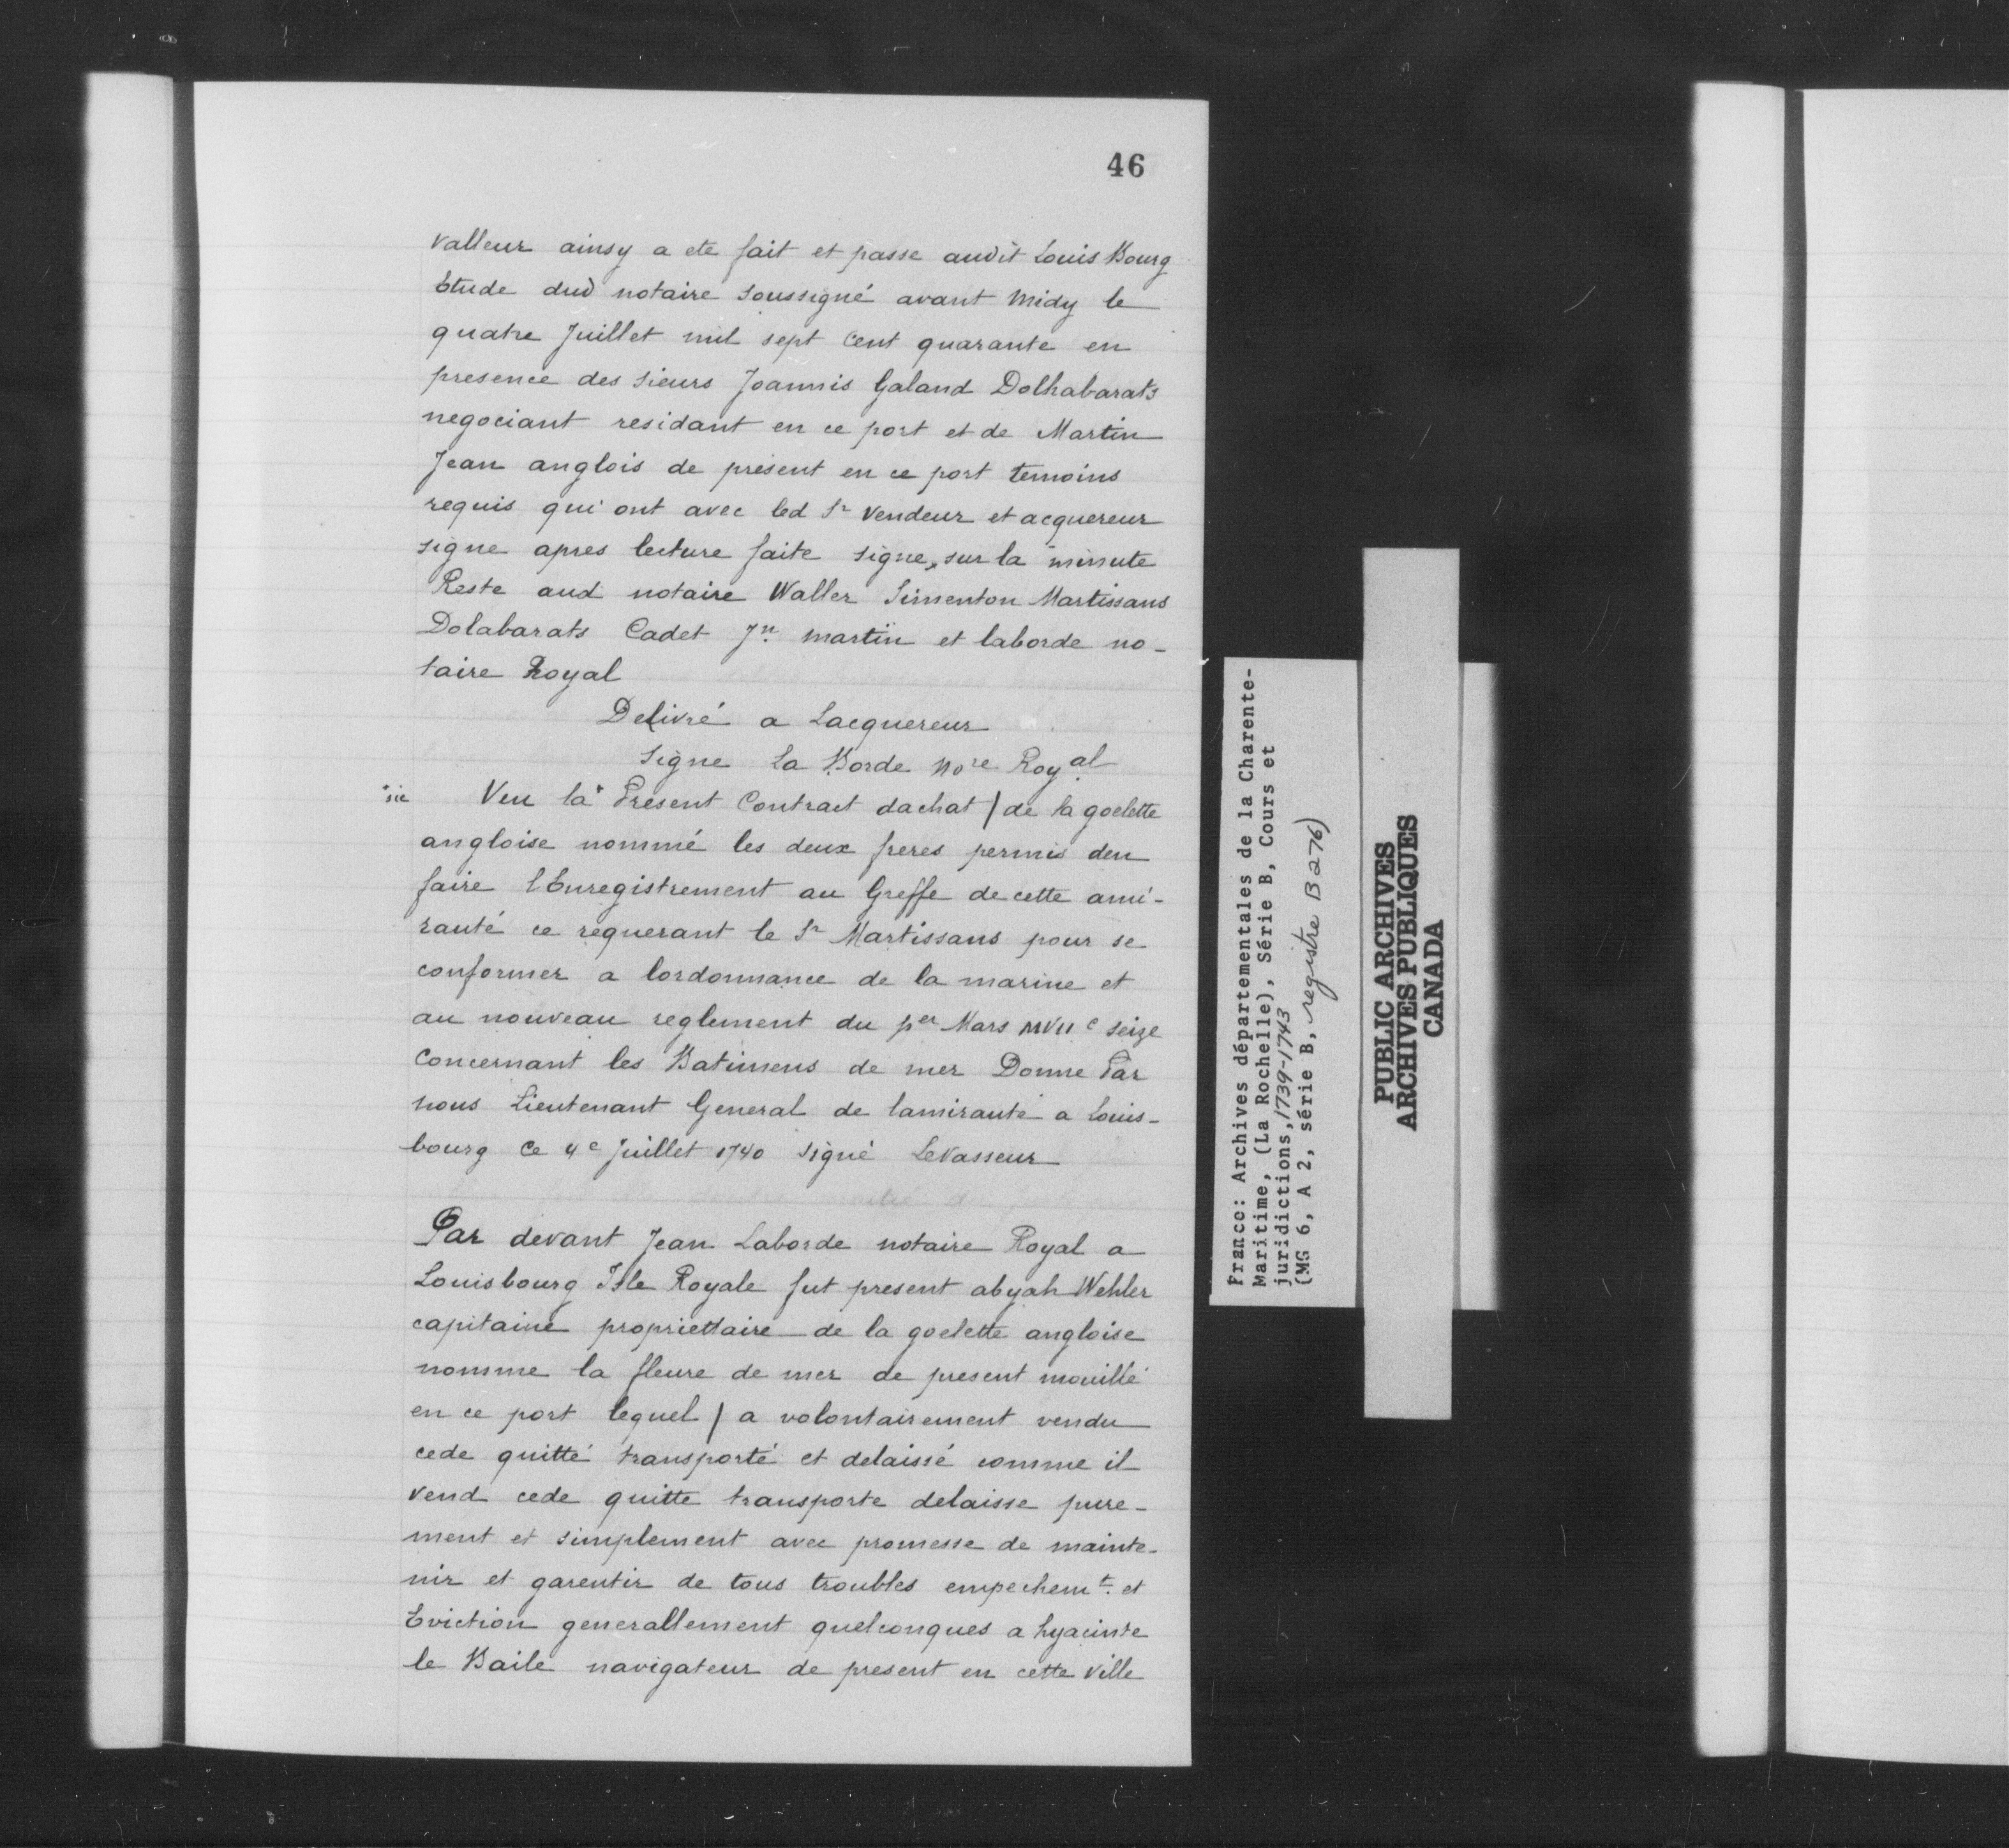 46
valleur ainsy a ete fait et passe audit Louis Bourg
Etude dud notaire soussigné avant midy le
quatre Juillet mil sept cent quarante en
presence des sieurs Joannis Galand Dolhabarats
negociant residant en ce port et de Martin
Jean anglois de présent en ce port temoins
requis qui ont avec led Sr vendeur et acquereur
signe apres lecture faite signe, sur la minute
Reste aud notaire Waller Simenton Martissans
Dolabarats Cadet Jn martin et laborde no-
taire Royal
Delivré a Lacquereur
Signe La Borde nore Royal
*sic Veu la* Present Contract dachat / de la goelette
angloise nommé les deux freres permis den
faire lEnregistrement au Greffe de cette ami-
rauté ce requerant le Sr Martissans pour se
conformer a lordonnance de la marine et
au nouveau reglement du per Mars MVIIc seize
Concernant les Batimens de mer Donne Par
nous Lieutenant General de lamirauté a Louis-
bourg ce 4e Juillet 1740 signé Levasseur
Par devant Jean Laborde notaire Royal a
Louisbourg Isle Royale fut present abyah Wehler
capitaine propriettaire de la goelette angloise
nomme la fleure de mer de present mouillé
en ce port lequel / a volontairement vendu
cede quitté transporté et delaissé comme il
vend cede quitte transporte delaisse pure-
ment et simplement avec promesse de mainte-
nir et garentir de tous troubles empechemt. et
Eviction generallement quelconques a hyacinte
le Baile navigateur de present en cette ville
France: Archives départementales de la Charente-
Maritime, (La Rochelle), Série B, Cours et
juridictions, 1739-1743
(MG 6, A 2, série B, registre B 276)
PUBLIC ARCHIVES
ARCHIVES PUBLIQUES
CANADA